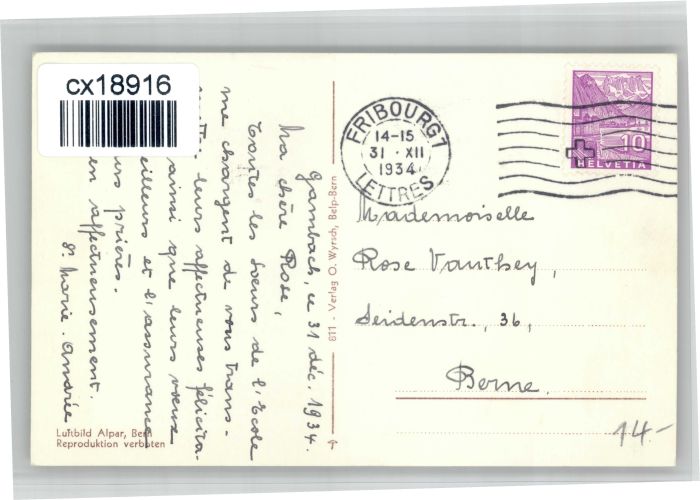 cx18916
Gambach, ce 31 déc. 1934.
Ma chère Rose,
Toutes les Soeurs de l'Ecole
me chargent de vous trans-
leurs affectueuses félicita-
ainsi que leurs voeux
et l'assurance
prières.
en affectueusement.
Sr. Marie-Andrée
811 - Verlag O. Wyrsch, Belp-Bern
Luftbild Alpar, Bern
Reproduktion verboten
FRIBOURG 1
14-15
31 · XII
1934
LETTRES
10
HELVETIA
Mademoiselle
Rose Vauthey,
Seidenstr., 36,
Berne.
14.-